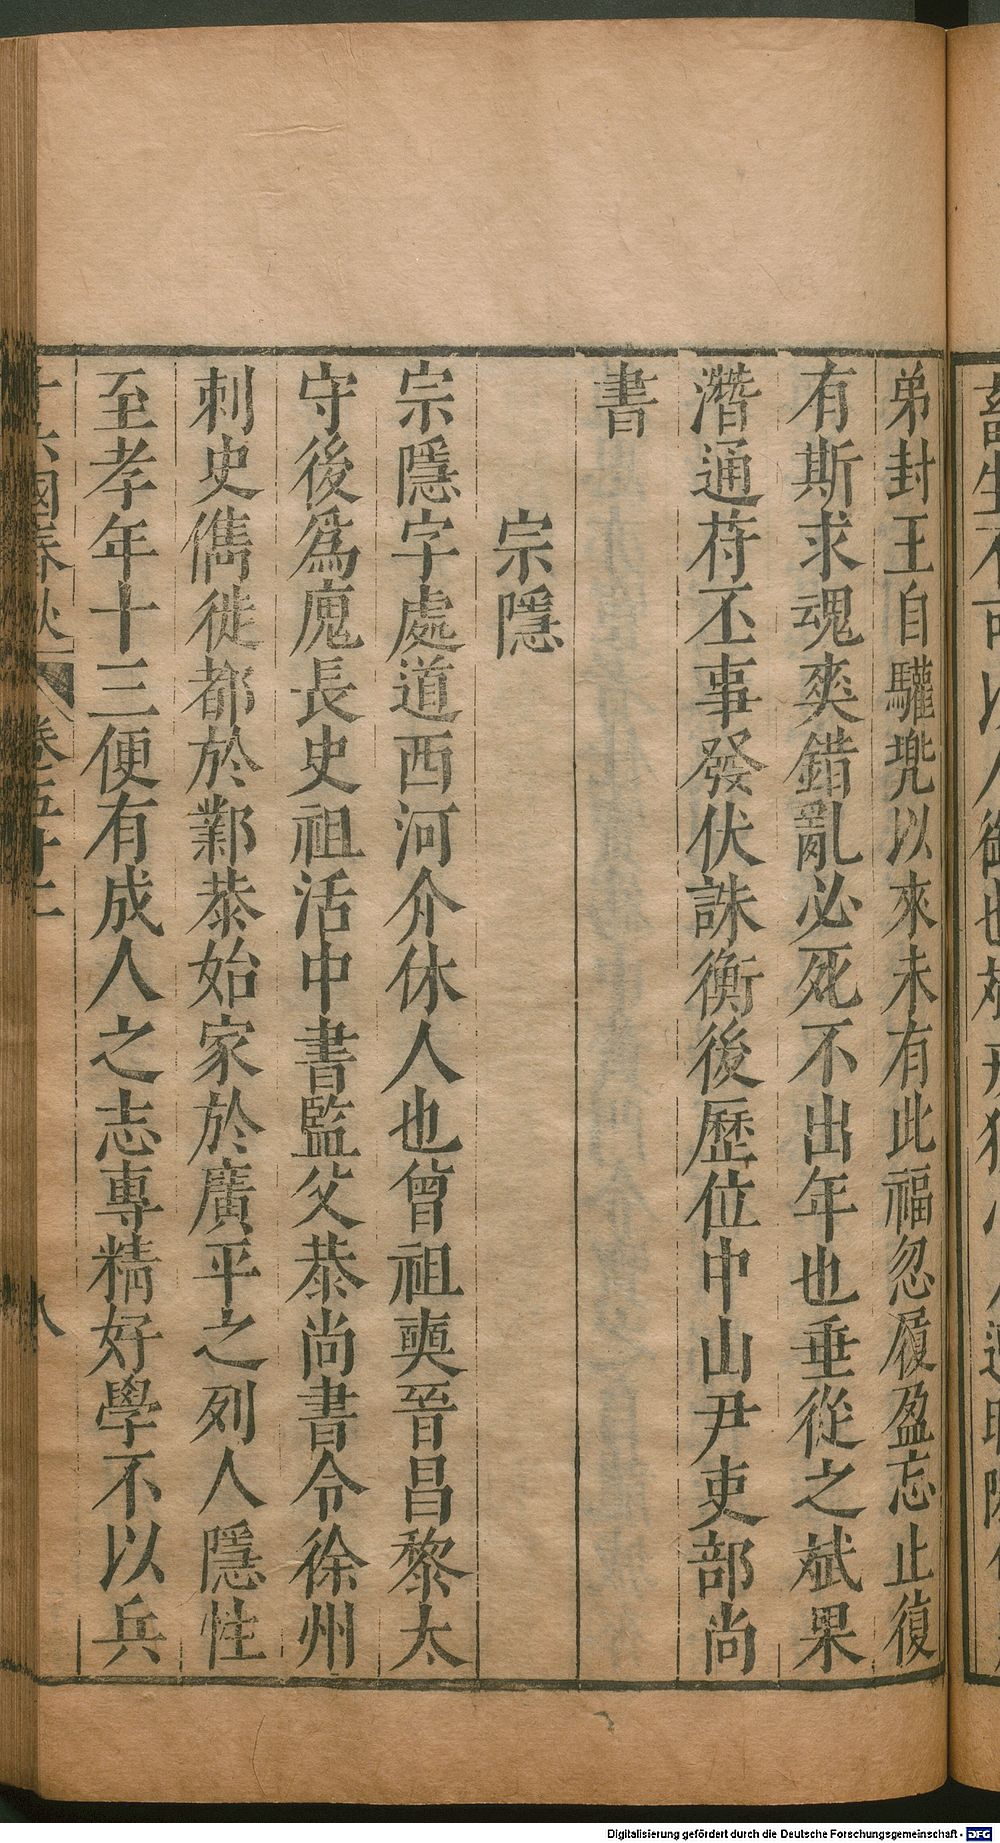 弟封王自驩兠以來未有此福忽履盈忘止復
有斯求魂爽錯亂必死不出年也垂從之斌果
濳通苻丕事發伏誅衡後歷位中山尹吏部尚
書
宗隱
宗隱字處道西河介休人也曾祖奭晉昌黎太
守後爲廆長史祖活中書監父恭尚書令徐州
刺史儁徙都於鄴恭始家於廣平之列人隱性
至孝年十三便有成人之志專精好學不以兵
十六國春秋 卷五十二 八
Digitalisierung gefördert durch die Deutsche Forschungsgemeinschaft - DFG